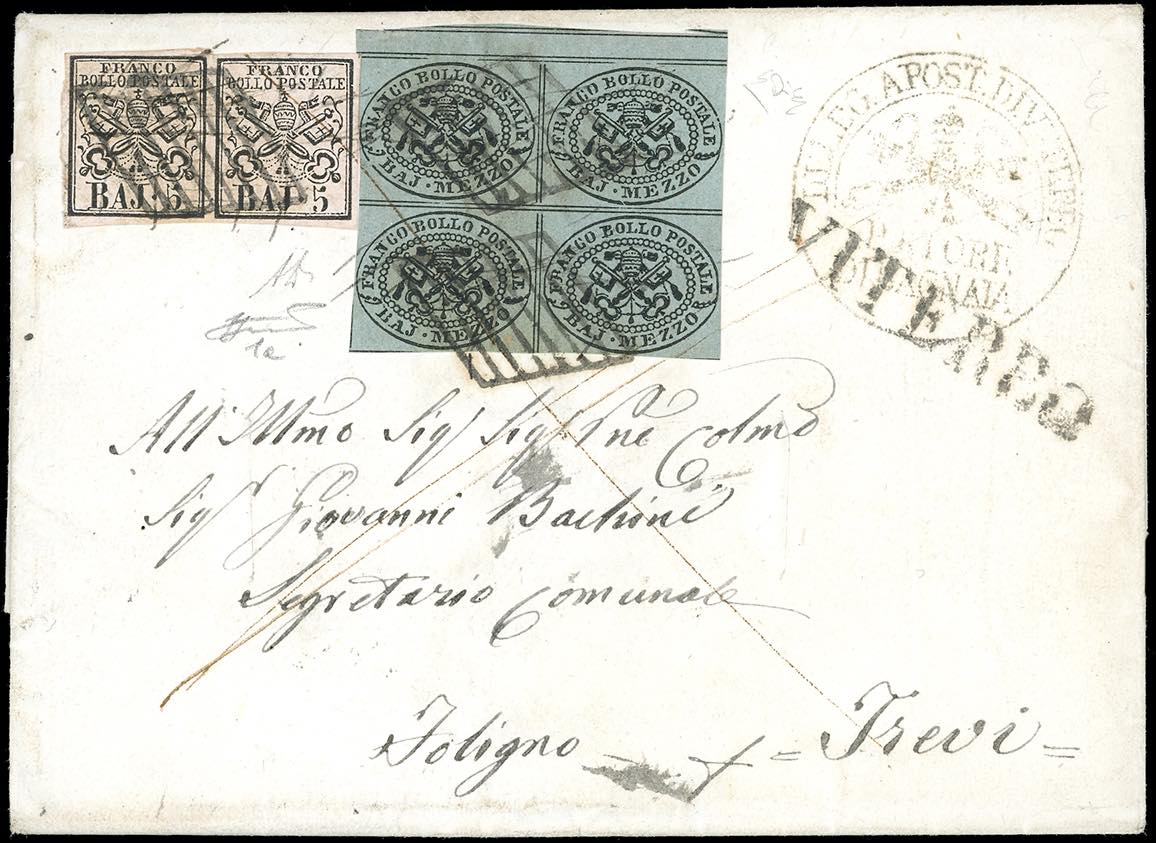 FRANCO
BOLLO POSTALE
BAJ. 5
FRANCO
BOLLO POSTALE
BAJ. 5
FRANCO BOLLO POSTALE
BAJ · MEZZO
FRANCO BOLLO POSTALE
BAJ · MEZZO
FRANCO BOLLO POSTALE
BAJ · MEZZO
FRANCO BOLLO POSTALE
BAJ · MEZZO
LEG. APOST. DI VITERBO
VITERBO
All Illmo Sig Sig Colmo
Sig Giovanni
Segretario Comunale
Foligno = Trevi =